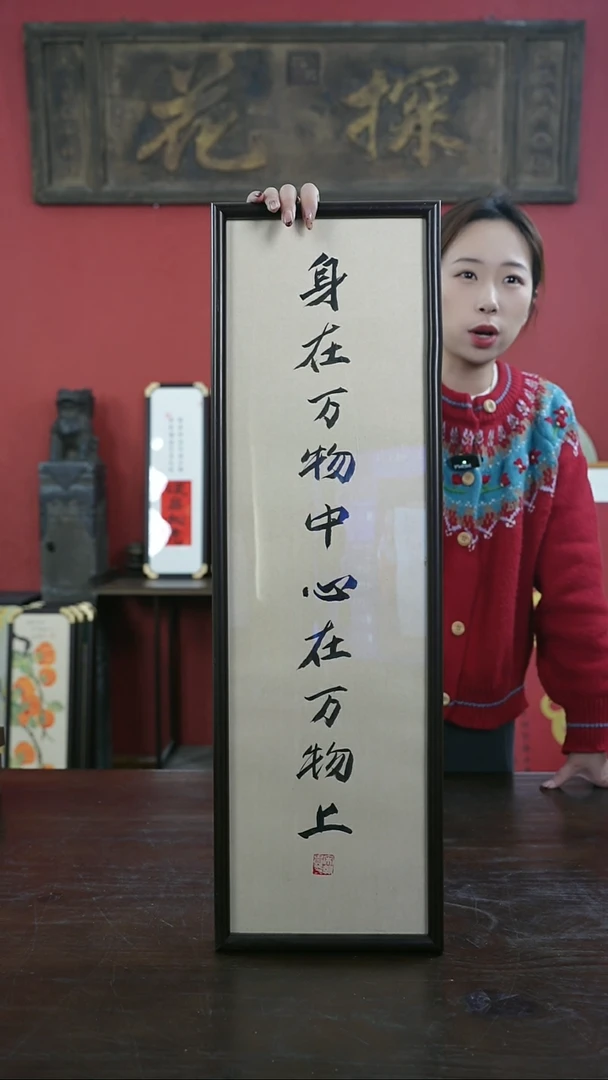 探花
身在万物中心在万物上